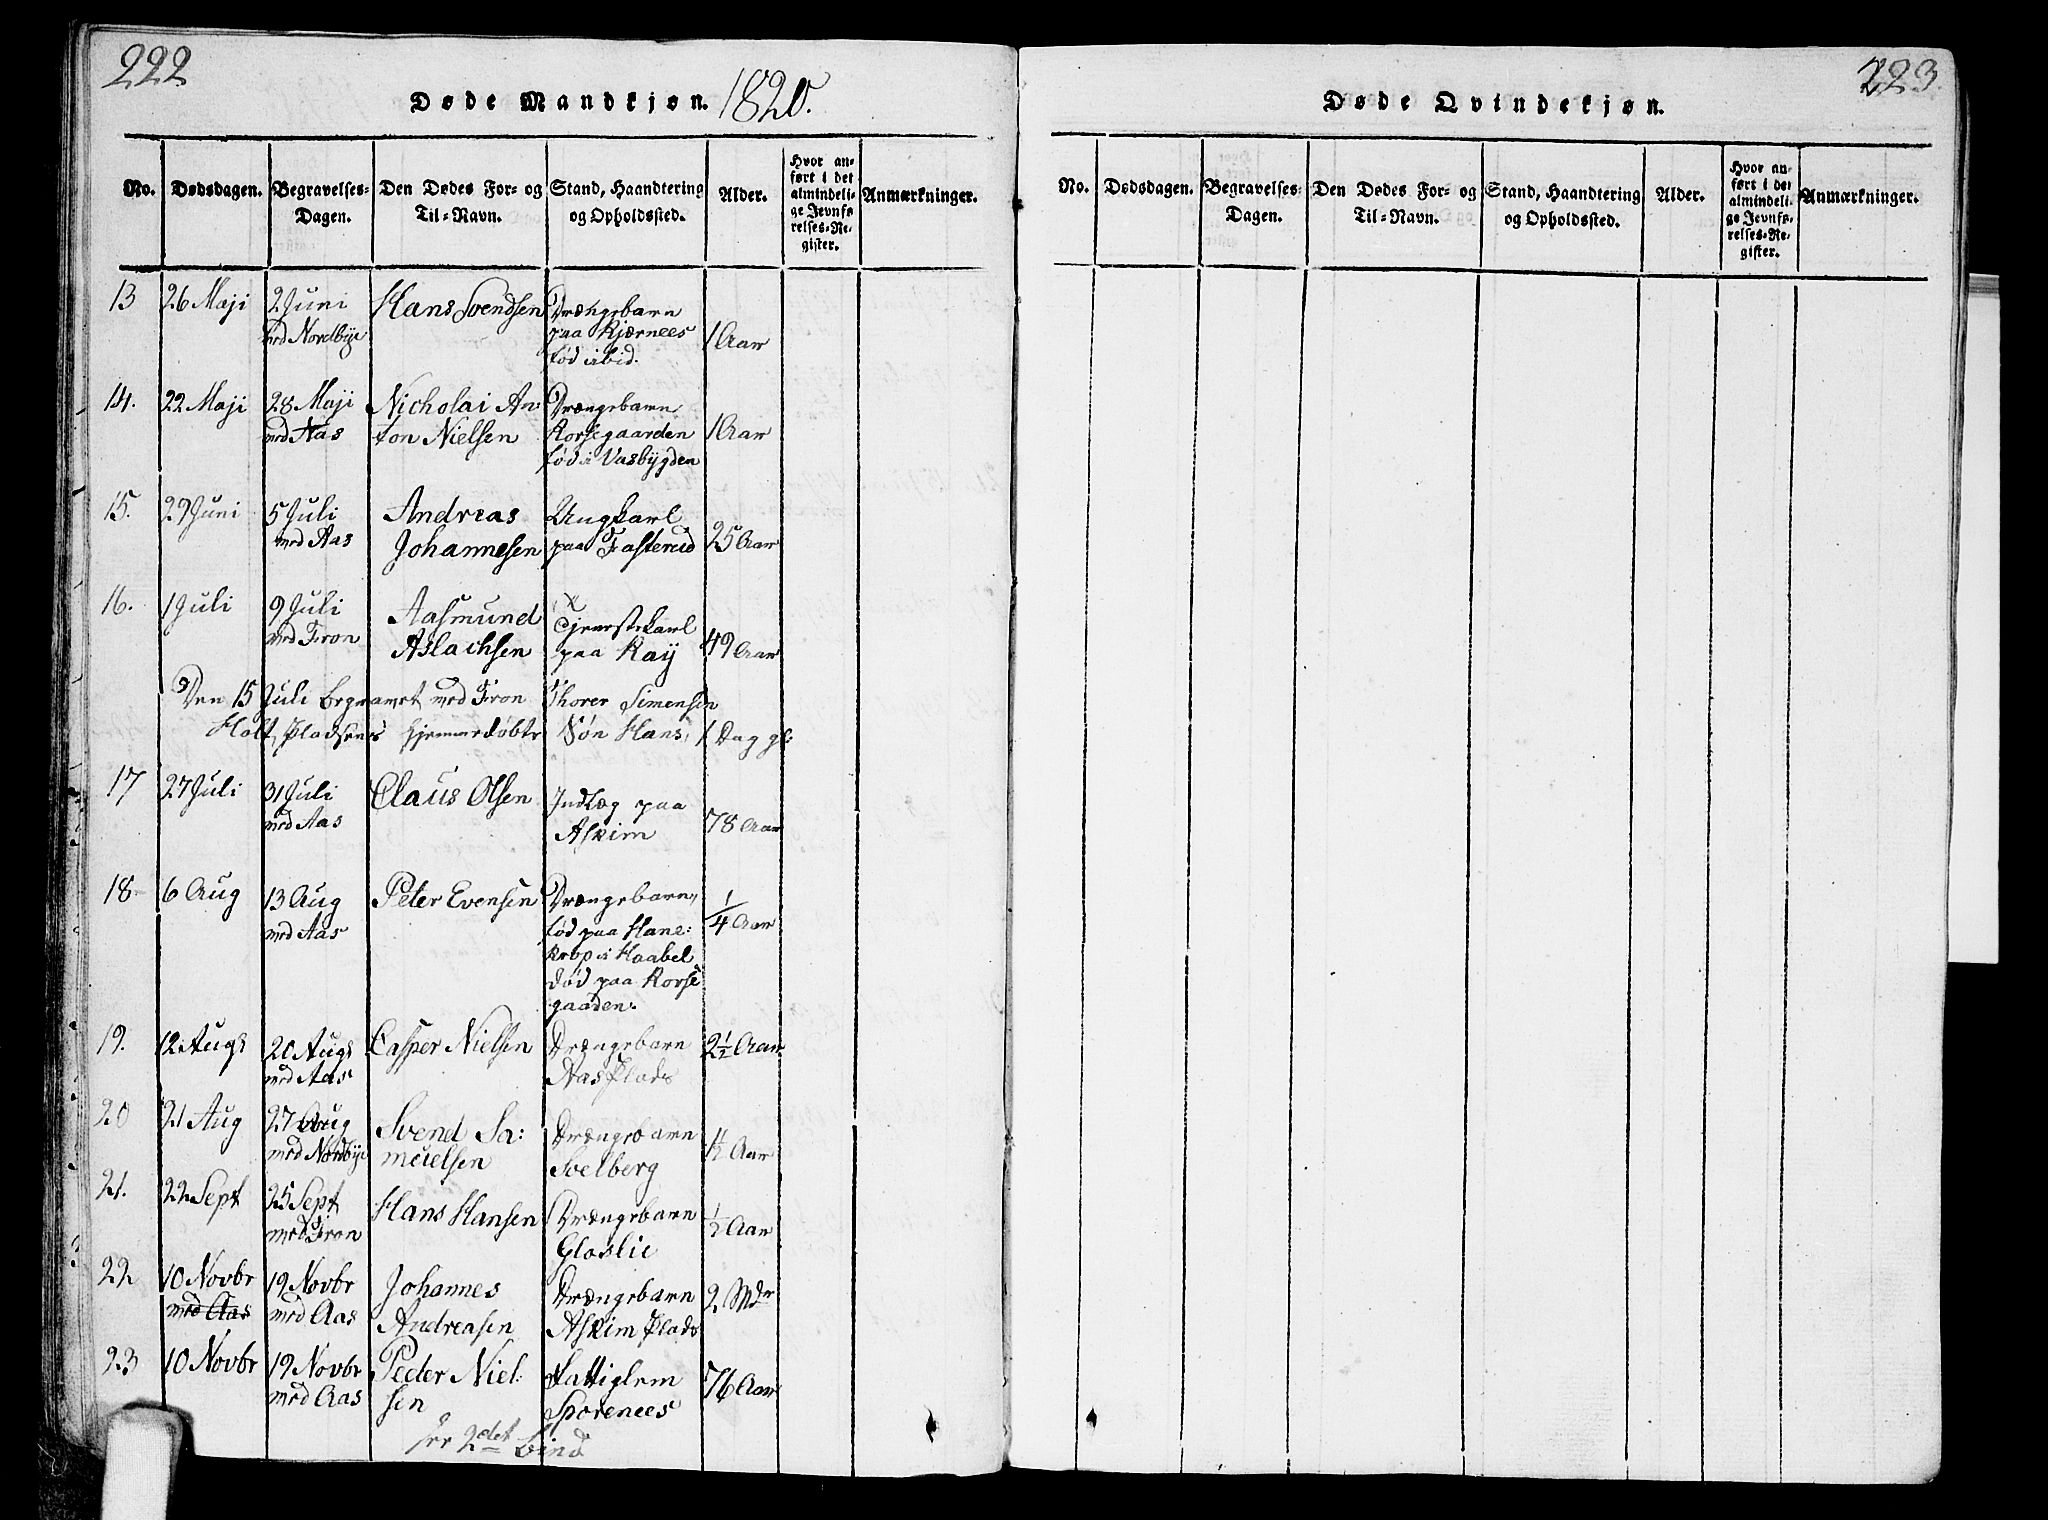 222
Døde Mandkjøn. 1820.
No. Dødsdagen. Begravelses-Dagen. Den Dødes For- og Til-Navn. Stand, Haandtering og Opholdssted. Alder. Hvor anført i det almindelige Jevnførelses-Register. Anmærkninger.
13 26 Maji 2 Juni Hans Svendsen Drængebarn
med Nordbye paa Kjærnees 1 Aar
fød ibid.
14. 22 Maji 28 Maji Nicholai An: Drængebarn
med Aas ton Nielsen Korsegaarden 1 Aar
fød i Vasbygden
15. 29 Juni 5 Juli Andreas Ungkarl
med Aas Johannesen paa Fasterud 25 Aar
16. 1 Juli 9 Juli Aasmund Tjenestekarl
med Fron Aslachsen paa Kay 49 Aar
Den 15 Juli begravet med Fron Thorer Simensen
Holt Pladsens hjemmedøbte Søn Hans, 1 Dag gl:
17 27 Juli 31 Juli Claus Olsen Indlæg paa
med Aas Askim 78 Aar
18 6 Aug 13 Aug Peter Evensen Drængebarn,
med Aas fød paa Hane: 1/4 Aar
krop i Haabel
død paa Korse
gaaden.
19. 12 Augs 20 Augs Casper Nielsen Drængebarn 2 1/2 Aar
med Aas Aas Plads
20 21 Aug 27 Aug Svend Sa: Drængebarn
med Nordbye muelsen Solberg 1/2 Aar
21. 22 Sept 25 Sept Hans Hansen Drængebarn 1/2 Aar
med Fron Gloslie
22 10 Novbr 19 Novbr Johannes Drængebarn 2 Mdr
med Aas med Aas Andreasen Askim Plads
23 10 Novbr 19 Novbr Peder Niel: Fattiglem 76 Aar
med Aas sen Sporenees
see 2det bind
223.
Døde Qvindekjøn.
No. Dødsdagen. Begravelses-Dagen. Den Dødes For- og Til-Navn. Stand, Haandtering og Opholdssted. Alder. Hvor anført i det almindelige Jevnførelses-Register. Anmærkninger.